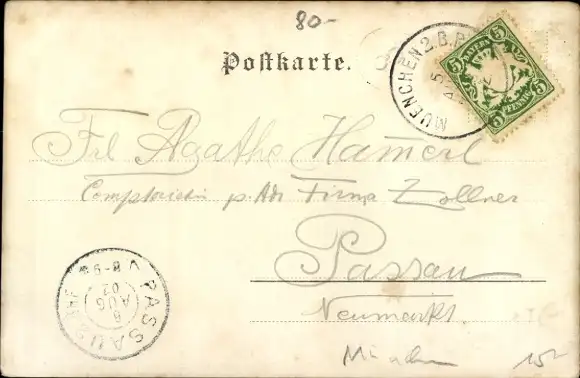 80-
Postkarte.
MUENCHEN 2. B.P.
5
BAYERN
5 5
PFENNIG
Frl Agathe Hamerl
Comptoristin p. Adr Firma Zollner
Passau
Neumarkt.
PASSAU
6
AUG
02
V 8-9
München
152